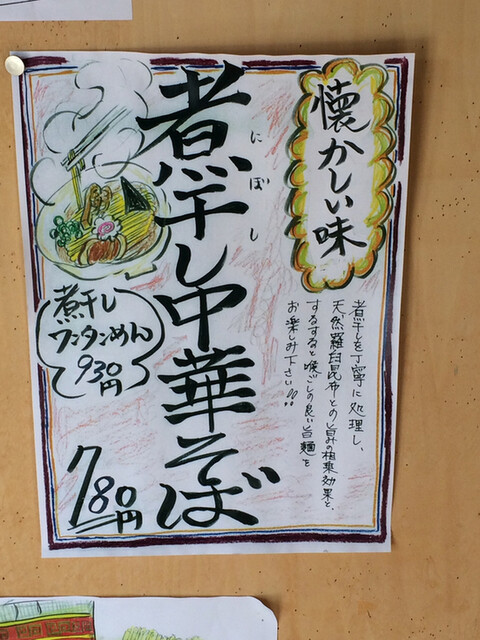 懐かしい味
煮干し中華そば
にぼし
780円
煮干し
ワンタンめん
930円
煮干しを丁寧に処理し、
天然羅臼昆布との旨みの相乗効果と、
するすると喉ごしの良い旨麺を
お楽しみ下さい!!